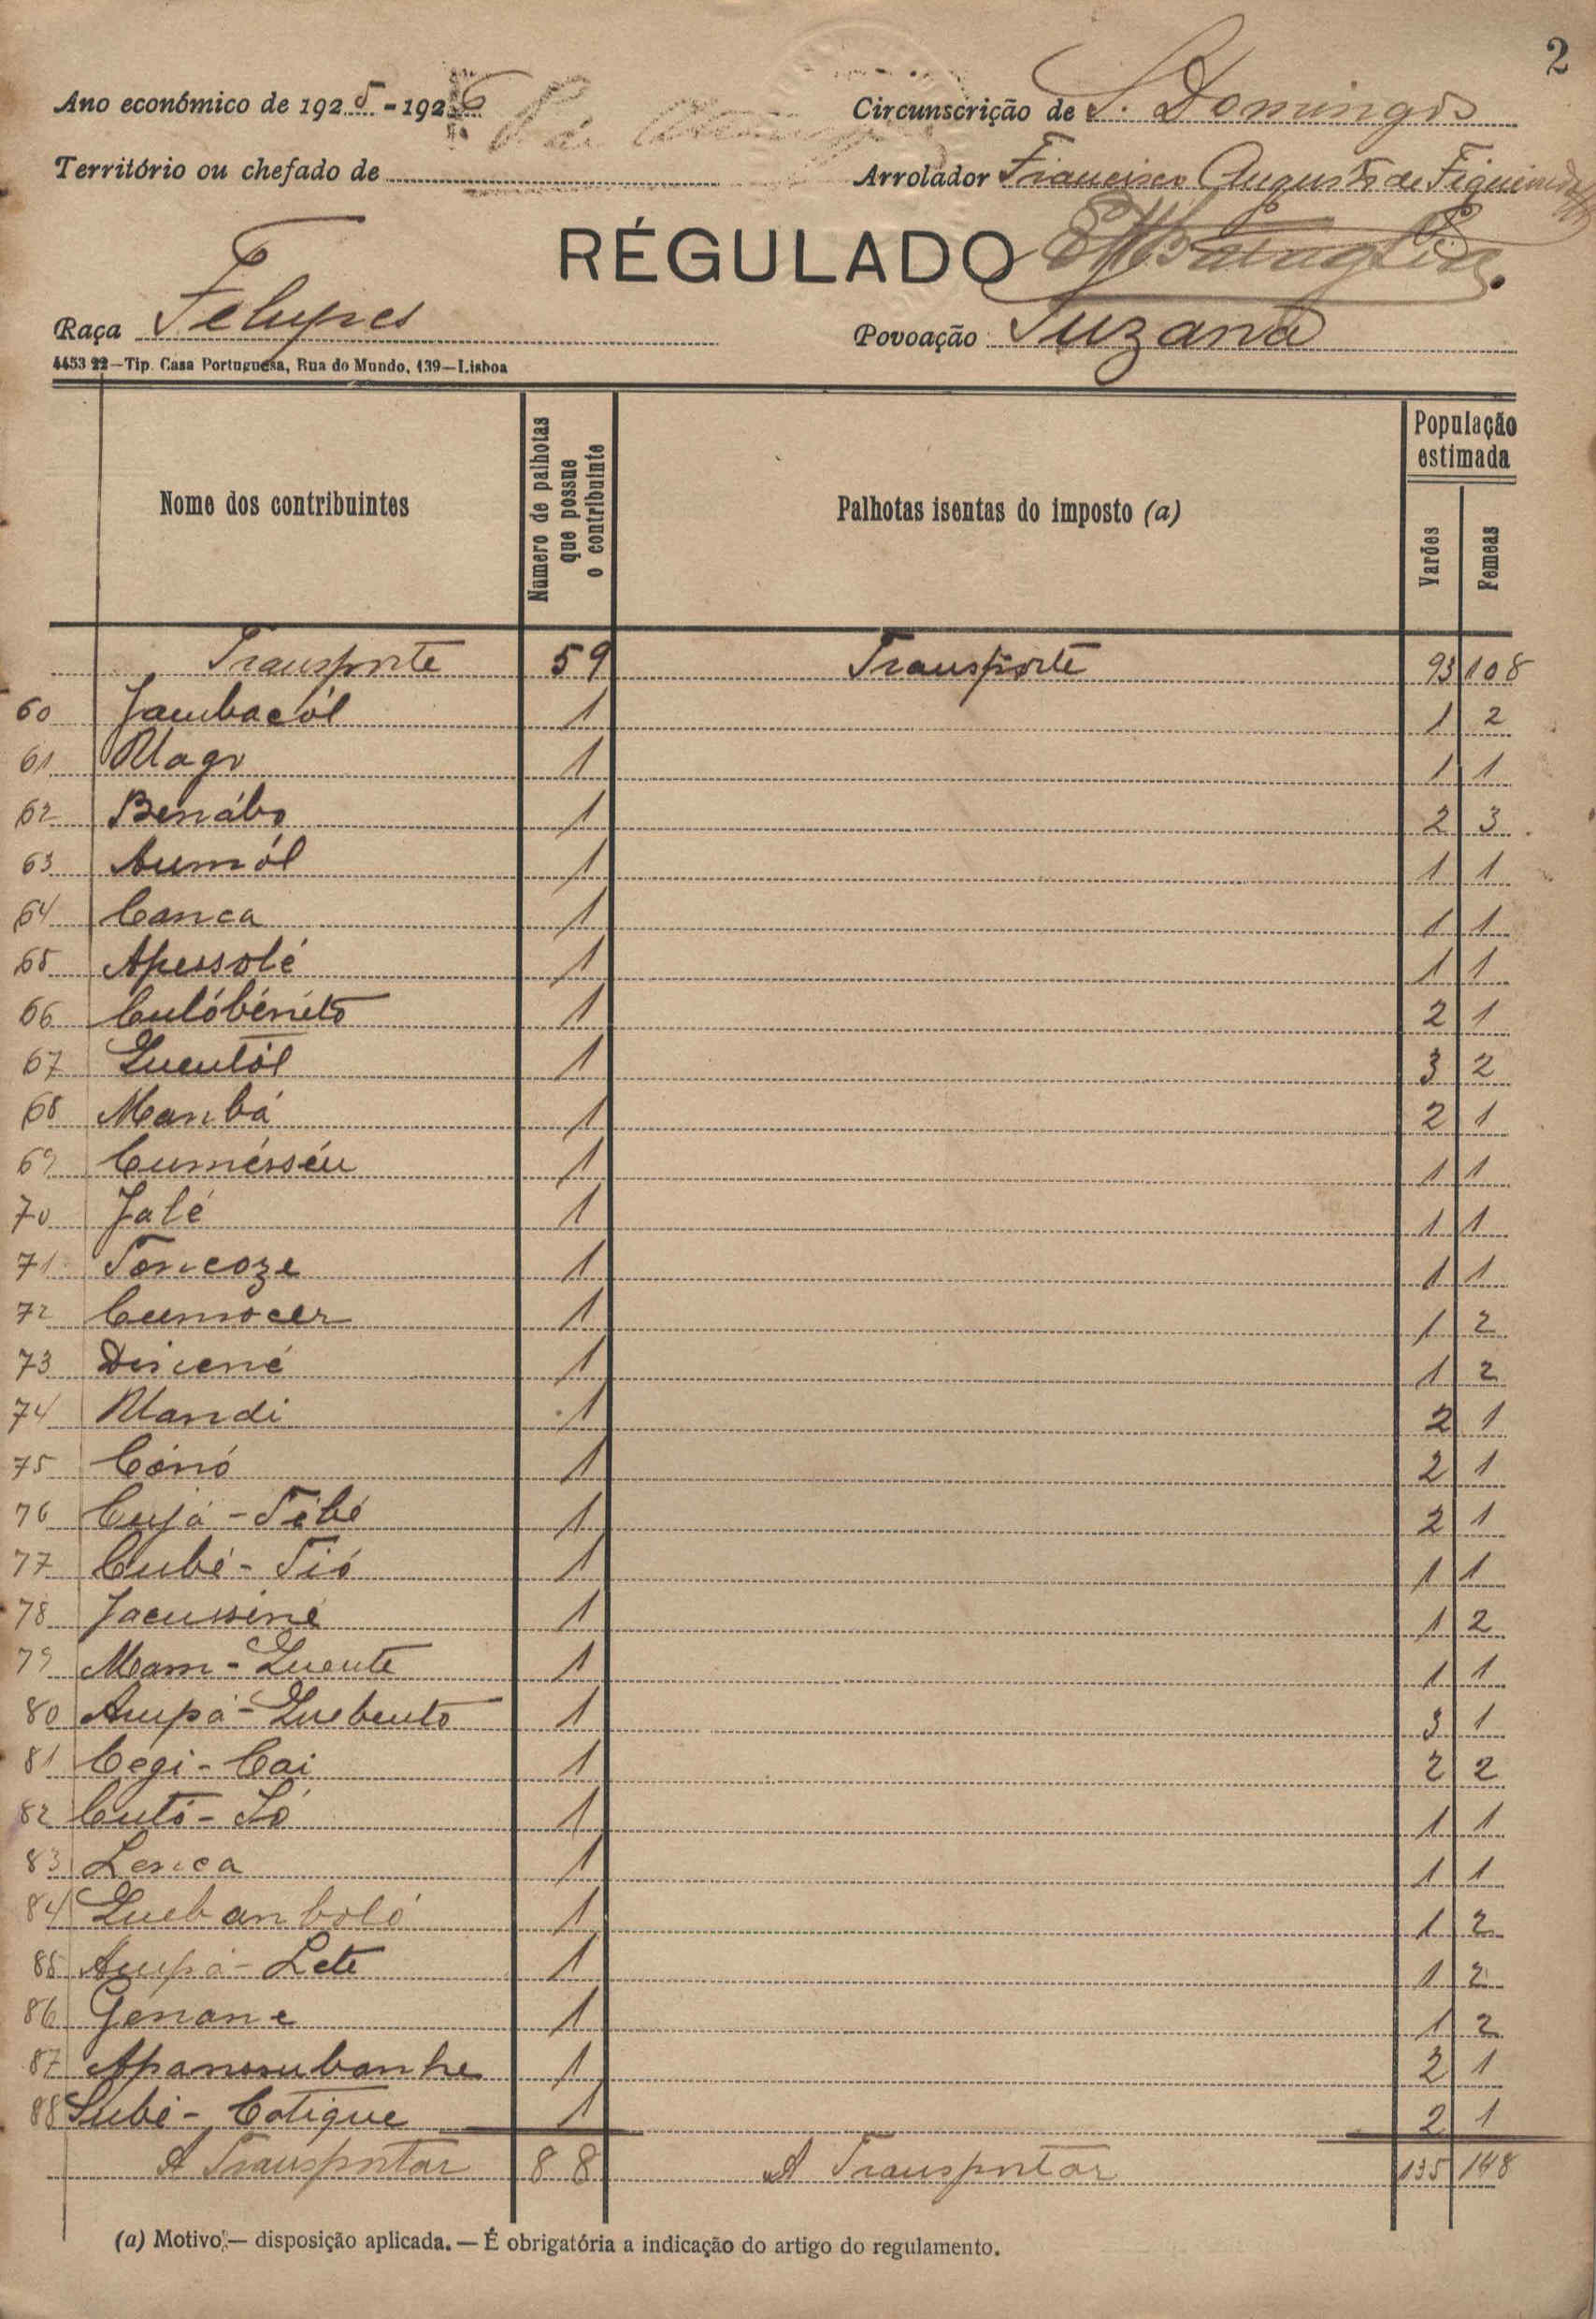 2
Ano económico de 1925-1926 Circunscrição de S. Domingos
Território ou chefado de Arrolador Francisco Augusto de Figueiredo
RÉGULADO
Raça Felupes Povoação Suzana
4453 22—Tip. Casa Portuguesa, Rua do Mundo, 139—Lisboa
Nome dos contribuintes Número de palhotas que possue o contribuinte Palhotas isentas do imposto (a) População estimada Varões Femeas
Transporte 59 Transporte 93 108
60 Jambacól 1 1 2
61 Mago 1 1 1
62 Benábo 1 2 3
63 Aumól 1 1 1
64 Canca 1 1 1
65 Apessolé 1 1 1
66 Culóbénéto 1 2 1
67 Quentól 1 3 2
68 Manbá 1 2 1
69 Cumésséu 1 1 1
70 Jalé 1 1 1
71 Toncoze 1 1 1
72 Cumocer 1 1 2
73 Discené 1 1 2
74 Mandi 1 2 1
75 Cónó 1 2 1
76 Cujá-Tébé 1 2 1
77 Cubé-Tió 1 1 1
78 Jacussiné 1 1 2
79 Mam-Quente 1 1 1
80 Ampá-Quebento 1 3 1
81 Cegi-Cai 1 2 2
82 Cutó-Ló 1 1 1
83 Lenca 1 1 1
84 Quebanboló 1 1 2
85 Ampá-Lete 1 1 2
86 Génane 1 1 2
87 Apanosubanhe 1 2 1
88 Subé-Cotique 1 2 1
A Transportar 88 A Transportar 135 148
(a) Motivo — disposição aplicada. — É obrigatória a indicação do artigo do regulamento.